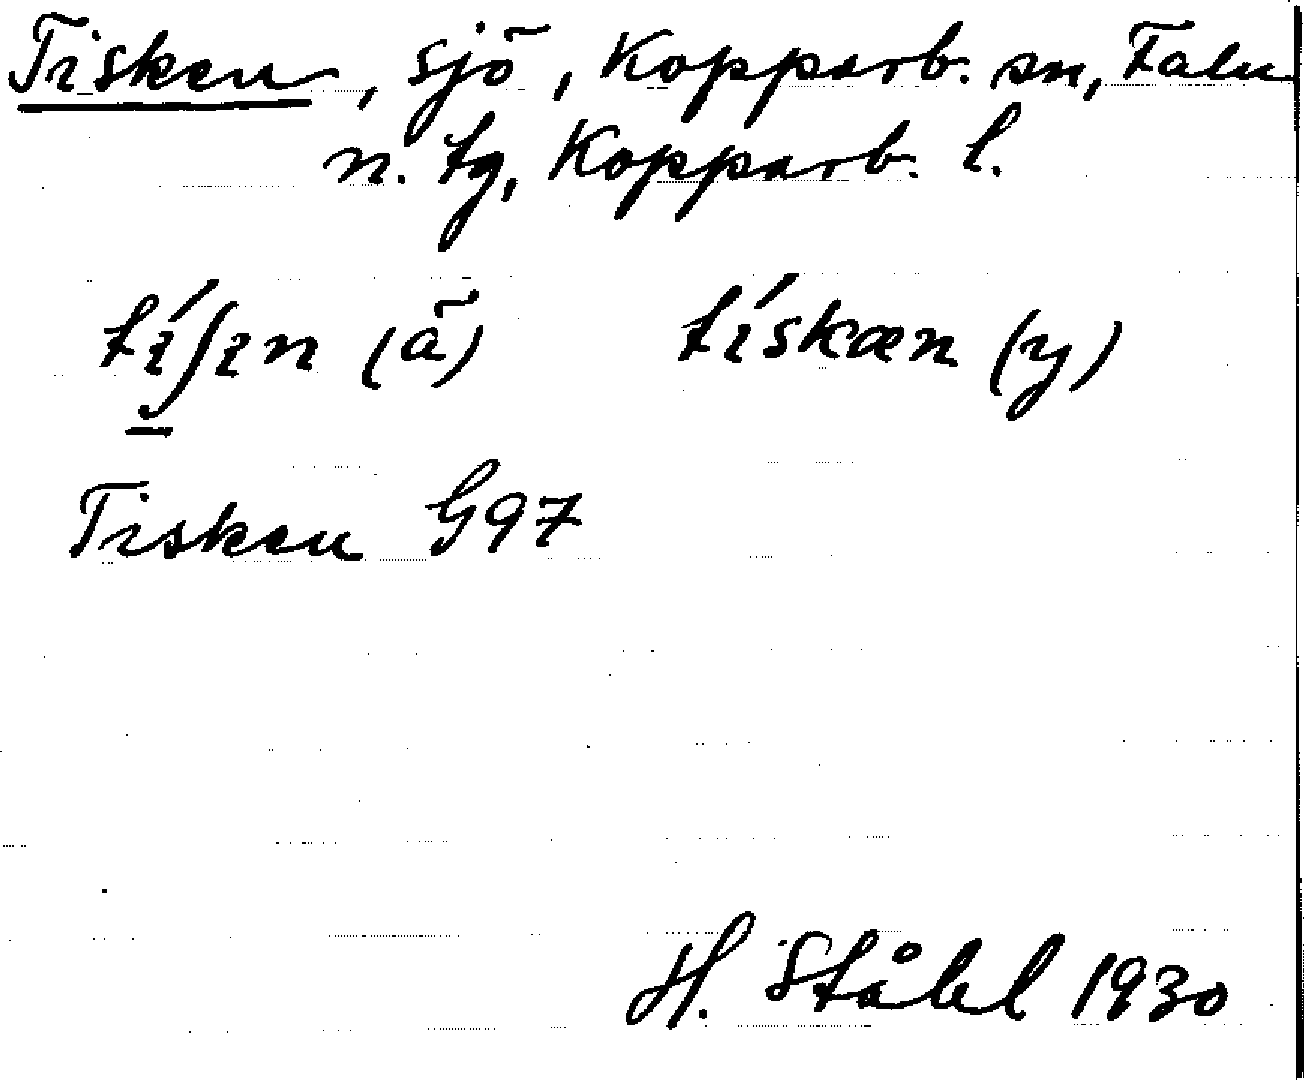 Tisken, sjö, Kopparb. sn, Falu
n. tg, Kopparb. l.
tíʃɩn (ä) tískæn (y)
Tisken G97
H. Ståhl 1930